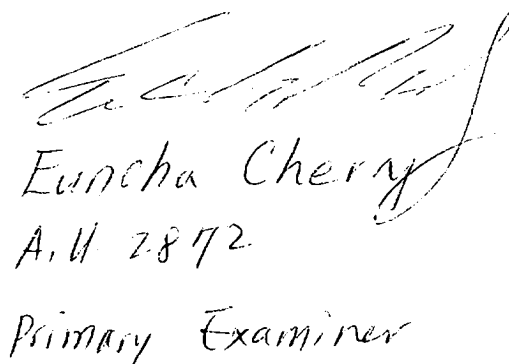 Euncha Cherry
A.U. 2872
Primary Examiner